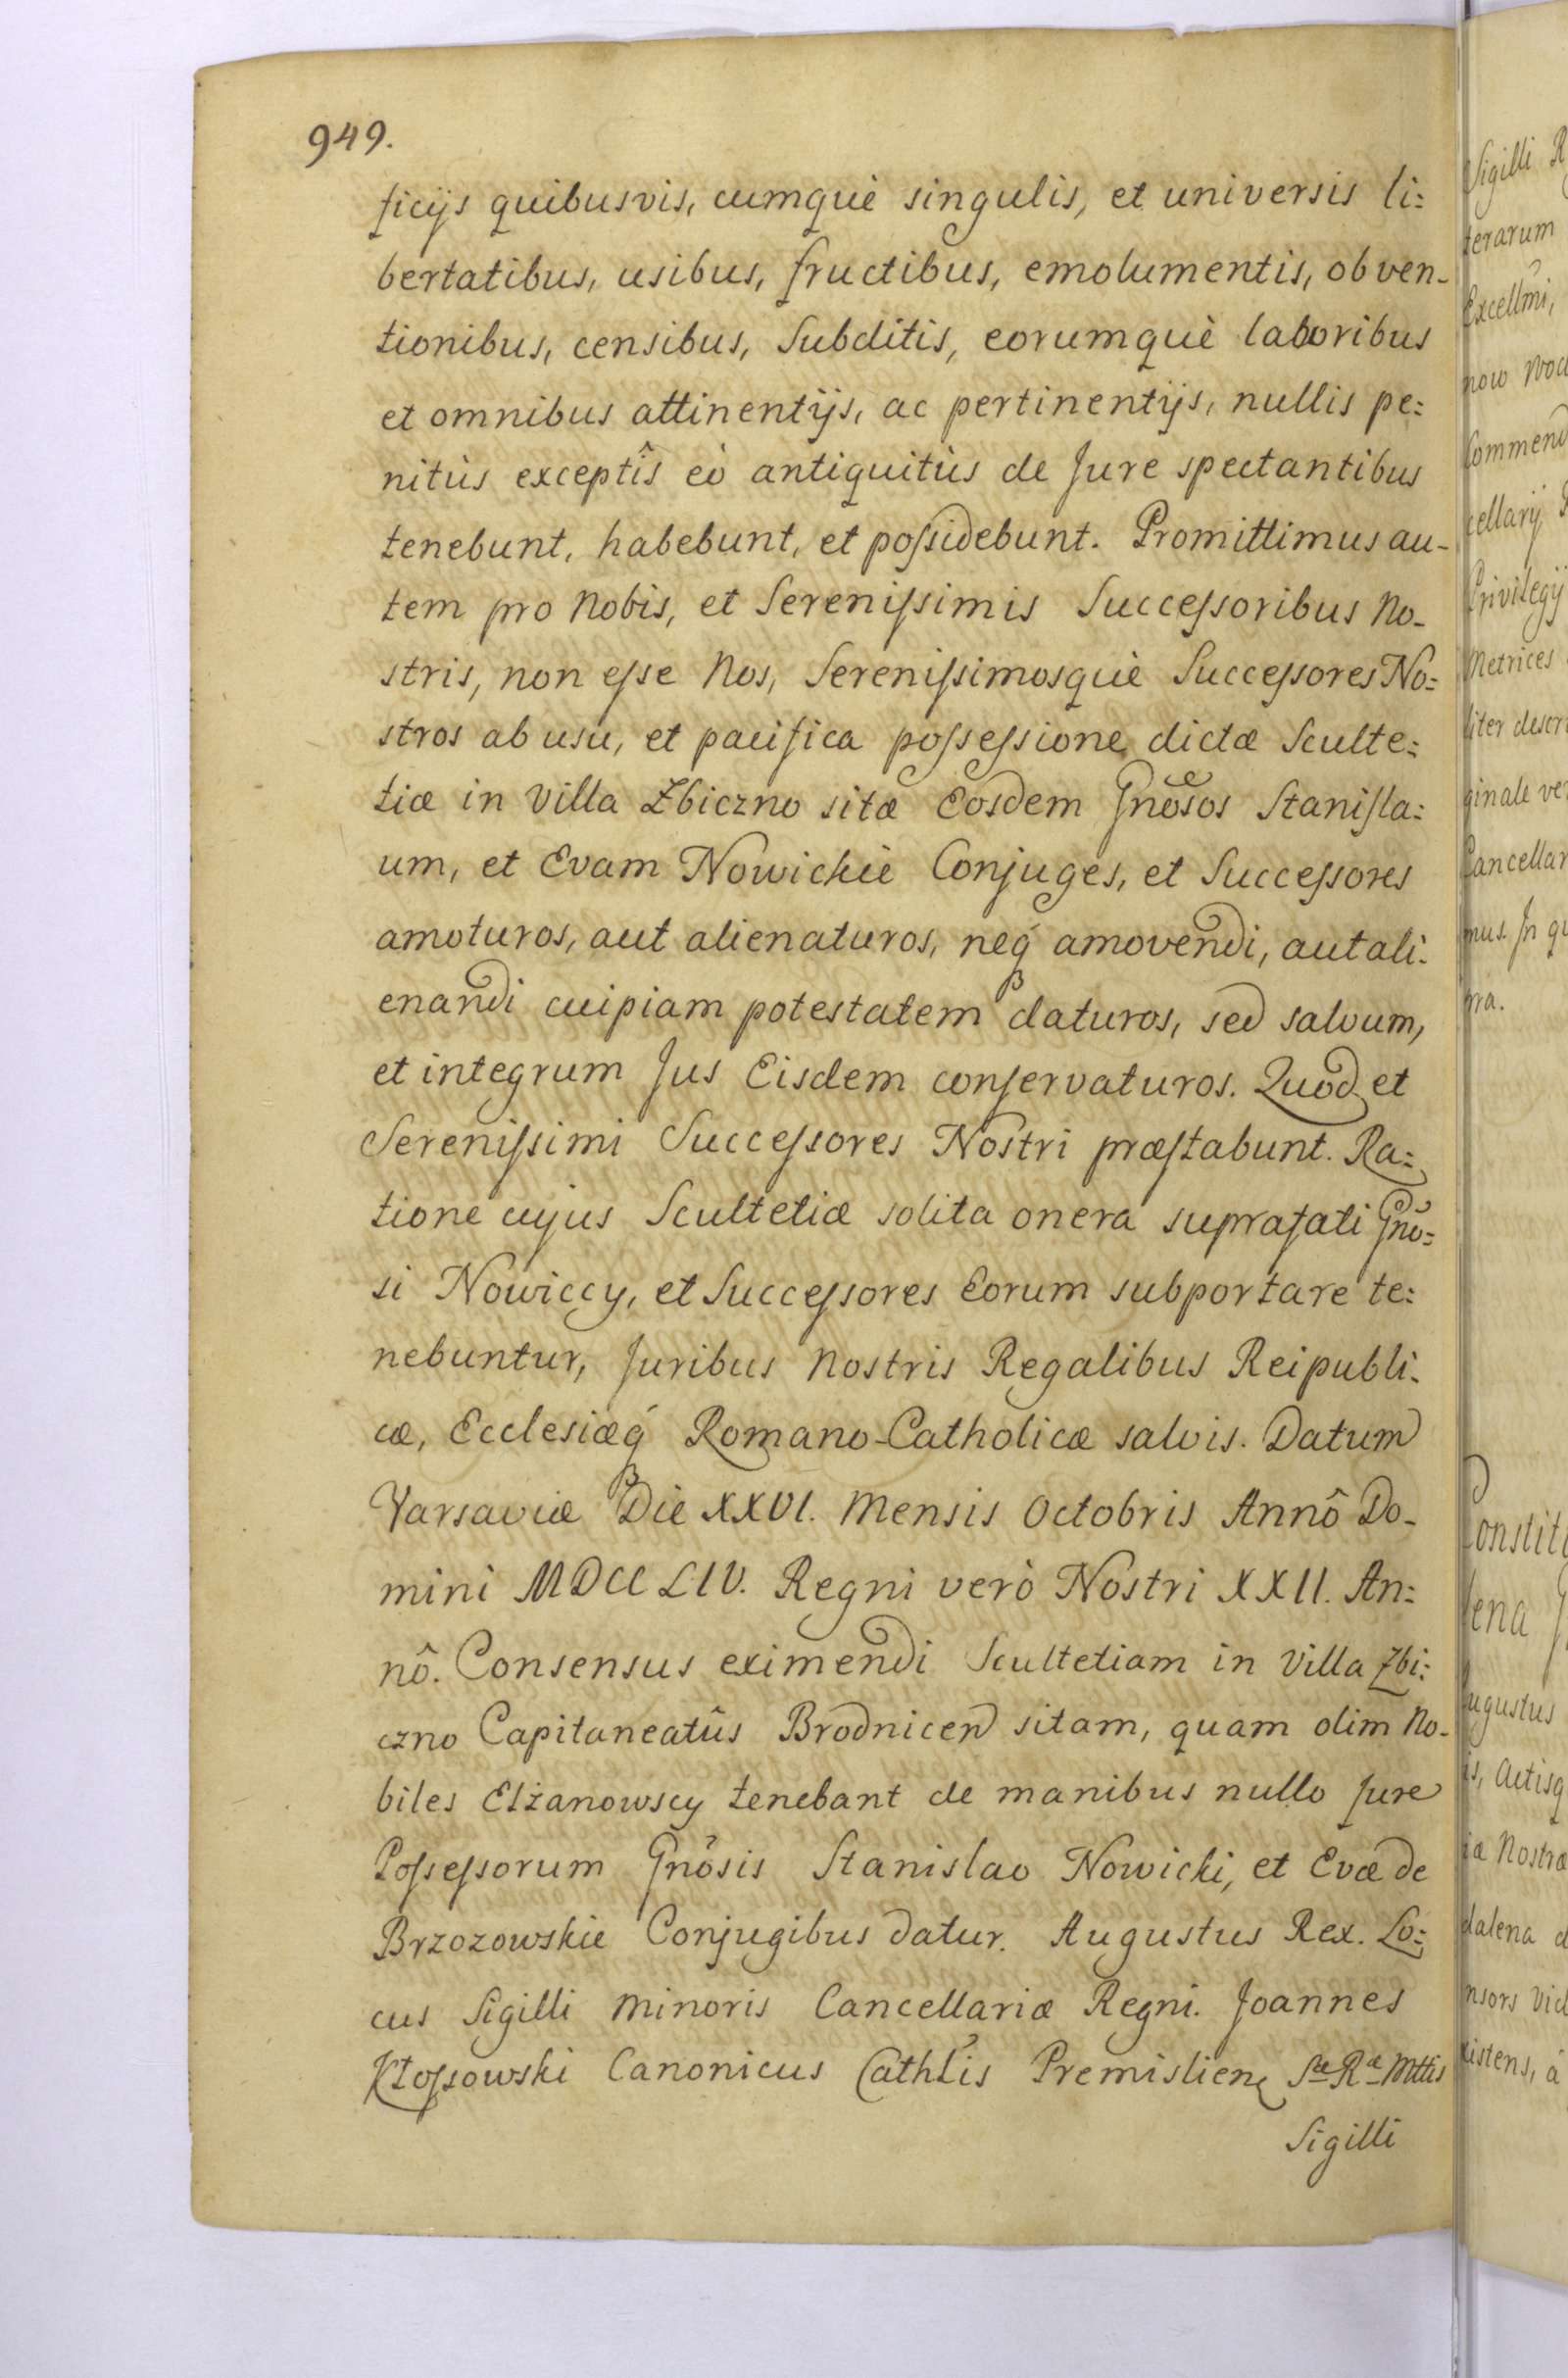 949.
ficijs quibusvis, cumquè singulis, et universis li:
bertatibus, usibus, fructibus, emolumentis, obven-
tionibus, censibus, Subditis, eorumquè laboribus
et omnibus attinentijs, ac pertinentijs, nullis pe:
nitùs exceptîs eò antiquitùs de Jure spectantibus
tenebunt, habebunt, et possidebunt. Promittimus au-
tem pro Nobis, et Serenissimis Successoribus No-
stris, non esse Nos, Serenissimosquè Successores No:
stros ab usu, et pacifica possessione dictæ Sculte:
tiæ in Villa Zbiczno sitæ Eosdem Gnosos Stanisla:
um, et Evam Nowickie Conjuges, et Successores
amoturos, aut alienaturos, neq́ amovendi, aut ali:
enandi cuipiam potestatem daturos, sed salvum,
et integrum Jus Eisdem conservaturos. Quod et
Serenissimi Successores Nostri præstabunt. Ra:
tione cujus Scultetiæ solita onera suprafati Gno:
si Nowiccy, et Successores Eorum subportare te:
nebuntur, Juribus Nostris Regalibus Reipubli:
cæ, Ecclesiæq́ Romano-Catholicæ salvis. Datum
Varsaviæ Die XXVI. Mensis Octobris Annô Do-
mini MDCCLIV. Regni verò Nostri XXII. An:
nô. Consensus eximendi Scultetiam in Villa Zbi:
czno Capitaneatûs Brodnicen sitam, quam olim No-
biles Elżanowscy tenebant de manibus nullo Jure
Possessorum Gnosis Stanislao Nowicki, et Evæ de
Brzozowskie Conjugibus datur. Augustus Rex. Lo:
cus Sigilli Minoris Cancellariæ Regni. Joannes
Kłossowski Canonicus Cathlis Premislien Sæ Ræ Mttis
Sigilli
Sigilli R
terarum
Excellmi,
now
Commend
cellarij
Privilegij
Metrices
liter descri
ginale ve
Cancellar
mus. In qu
pra.
Constitu
lena
Augustus
is, Actisq
iæ Nostræ
dalena
nsors
xistens, à